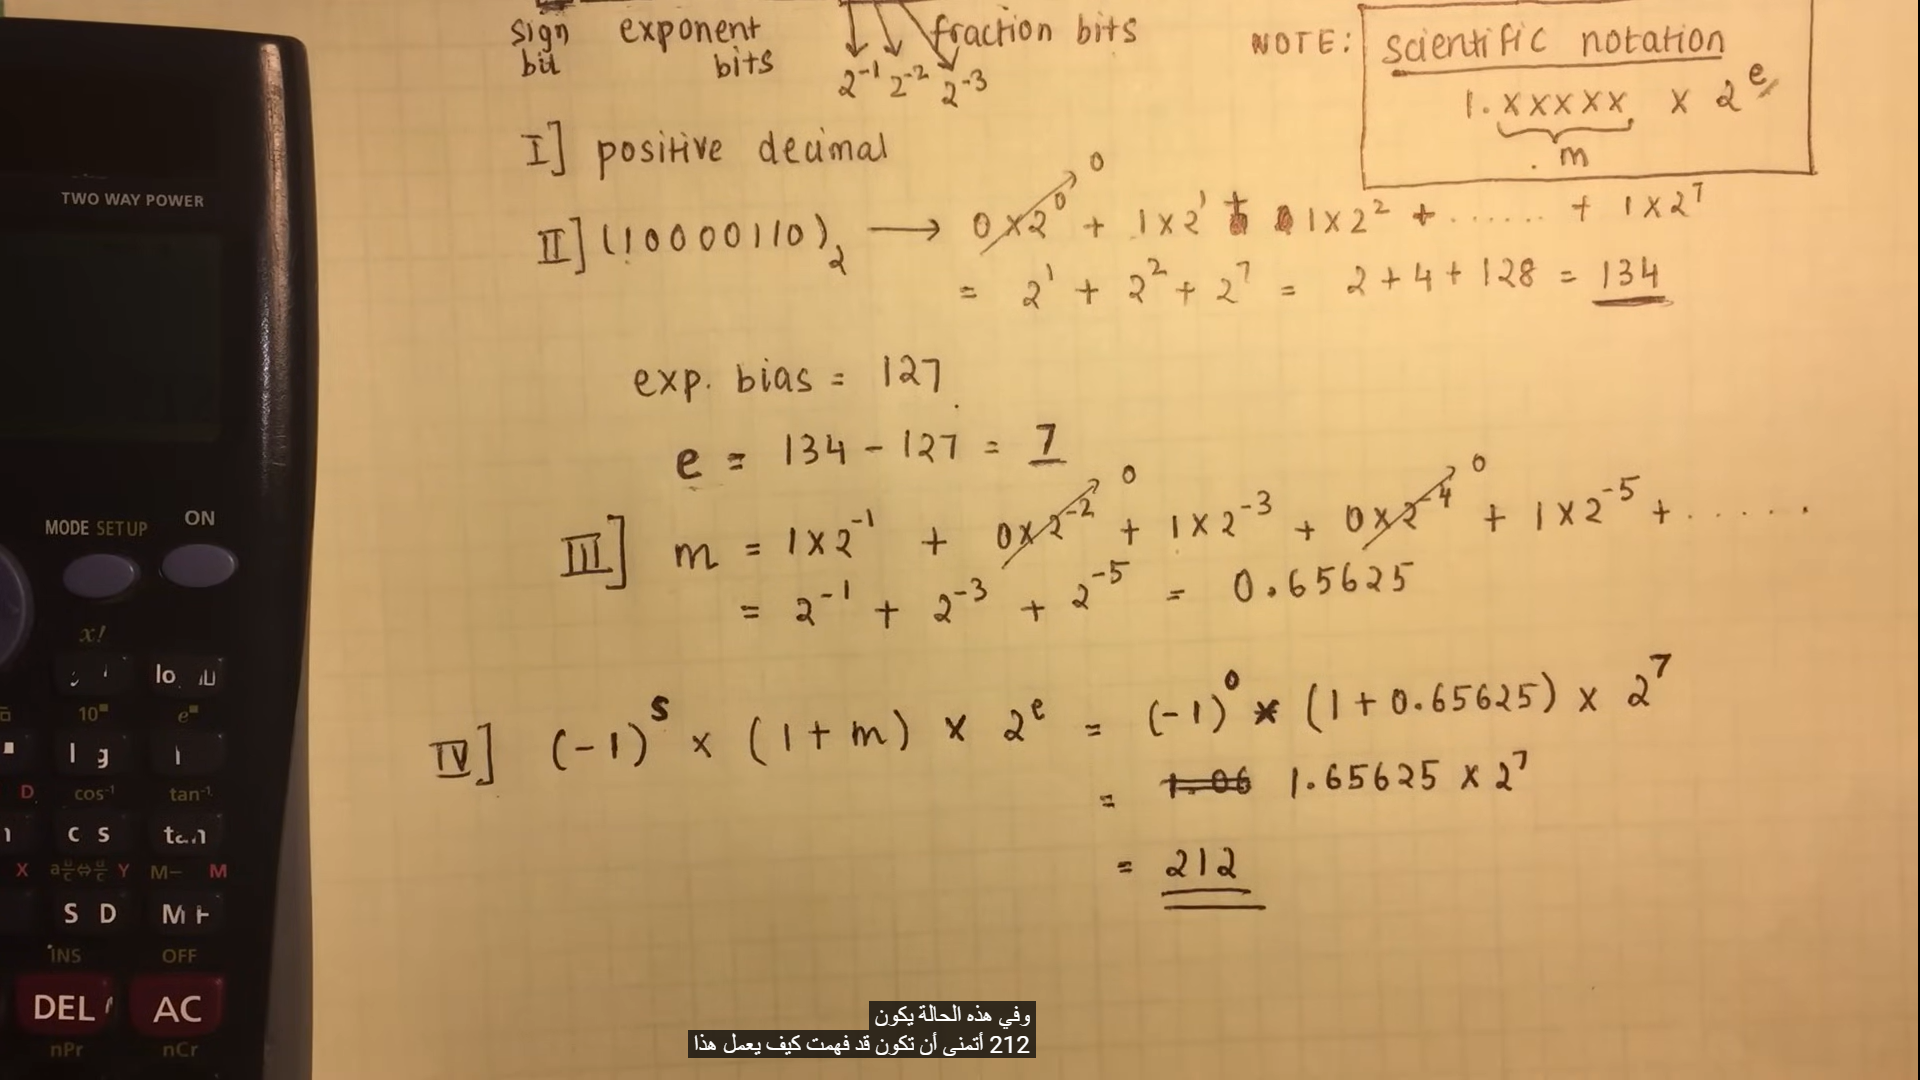 sign exponent fraction bits
bit bits
2^-1 2^-2 2^-3
NOTE: scientific notation
1.xxxxx x 2^e
m
I] positive decimal
II] (10000110)₂ → 0x2^0 0 + 1x2^1 + 1x2^2 + ...... + 1x2^7
= 2^1 + 2^2 + 2^7 = 2+4+128 = 134
exp. bias = 127
e = 134 - 127 = 7
III] m = 1x2^-1 + 0x2^-2 0 + 1x2^-3 + 0x2^-4 0 + 1x2^-5 + ......
= 2^-1 + 2^-3 + 2^-5 = 0.65625
IV] (-1)^s x (1+m) x 2^e = (-1)^0 x (1+0.65625) x 2^7
= 1.06 1.65625 x 2^7
= 212
TWO WAY POWER
MODE SETUP ON
x!
10■ e■
D cos⁻¹ tan⁻¹
X Y M– M
INS OFF
DEL AC
nPr nCr
وفي هذه الحالة يكون
212 أتمنى أن تكون قد فهمت كيف يعمل هذا